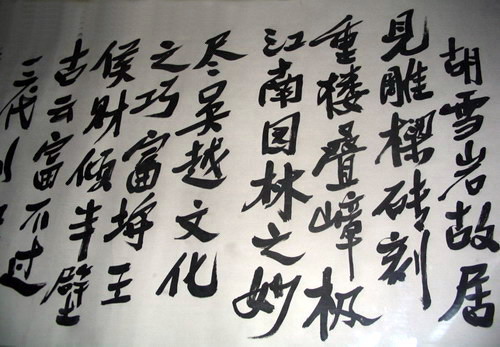 胡雪岩故居
见雕樑砖刻
重楼叠嶂极
江南园林之妙
尽吴越文化
之巧富埒王
侯财倾半壁
古云富不过
三代